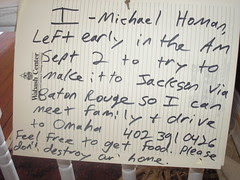 I - Michael Homan,
Left early in the AM
Sept 2 to try to
make it to Jackson via
Baton Rouge so I can
meet family & drive
to Omaha 402 391 0426
Feel free to get food. Please
don't destroy our home.
Wabash Center